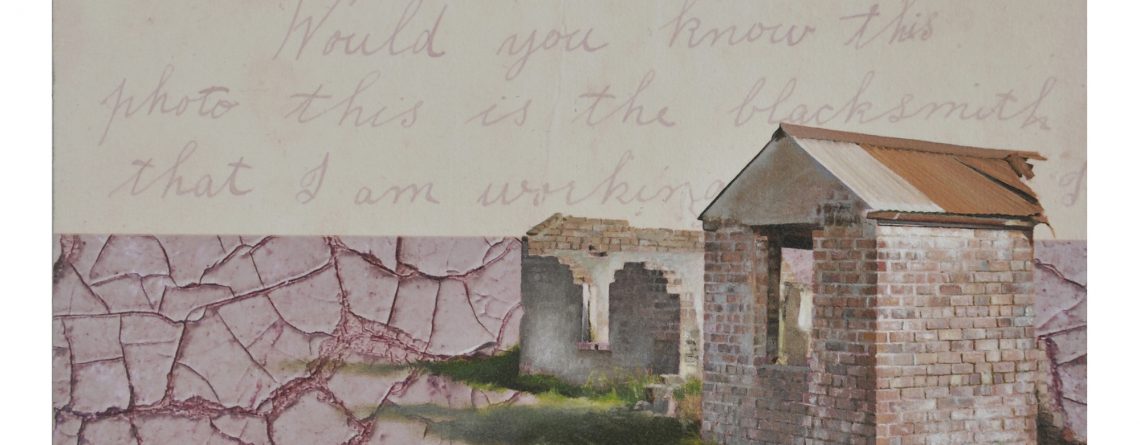 Would you know this
photo this is the blacksmith
that I am working I